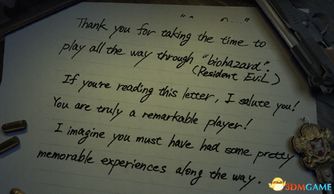 Thank you for taking the time to
play all the way through "biohazard."
(Resident Evil)
If you're reading this letter, I salute you!
You are truly a remarkable player!
I imagine you must have had some pretty
memorable experiences along the way.
3DMGAME